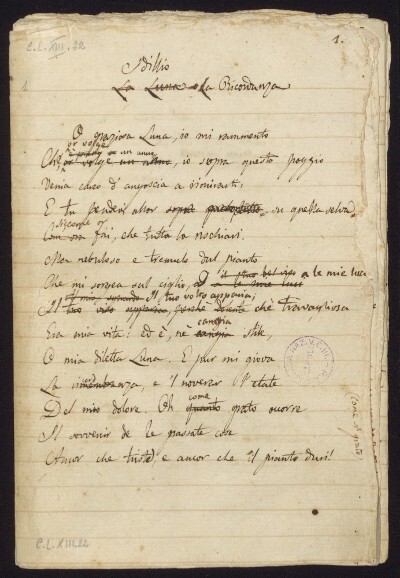 C.L.XIII.22
1.
Idillio
La Luna o la Ricordanza
O graziosa Luna, io mi rammento
or volge
è presso a un anno
Che, or volge un anno, io sopra questo poggio
Venia carco d'angoscia a rimirarti:
E tu pendevi allor su quella selva
Siccome or
fai, che tutta la rischiari.
Ma nebuloso e tremulo dal pianto
il tuo bel viso
Che mi sorgea sul ciglio, a le mie luci
Il tuo volto apparia;
Il tuo viso apparia, perchè dolente che travagliosa
cangia
Era mia vita: ed è, nè cangia stile,
O mia diletta Luna. E pur mi giova
La ricordanza, e 'l noverar l'etate
come
Del mio dolore. Oh quanto grato occorre
Il sovvenir de le passate cose
Ancor che triste, e ancor che il pianto duri!
(come è grato)
C.L.XIII.22